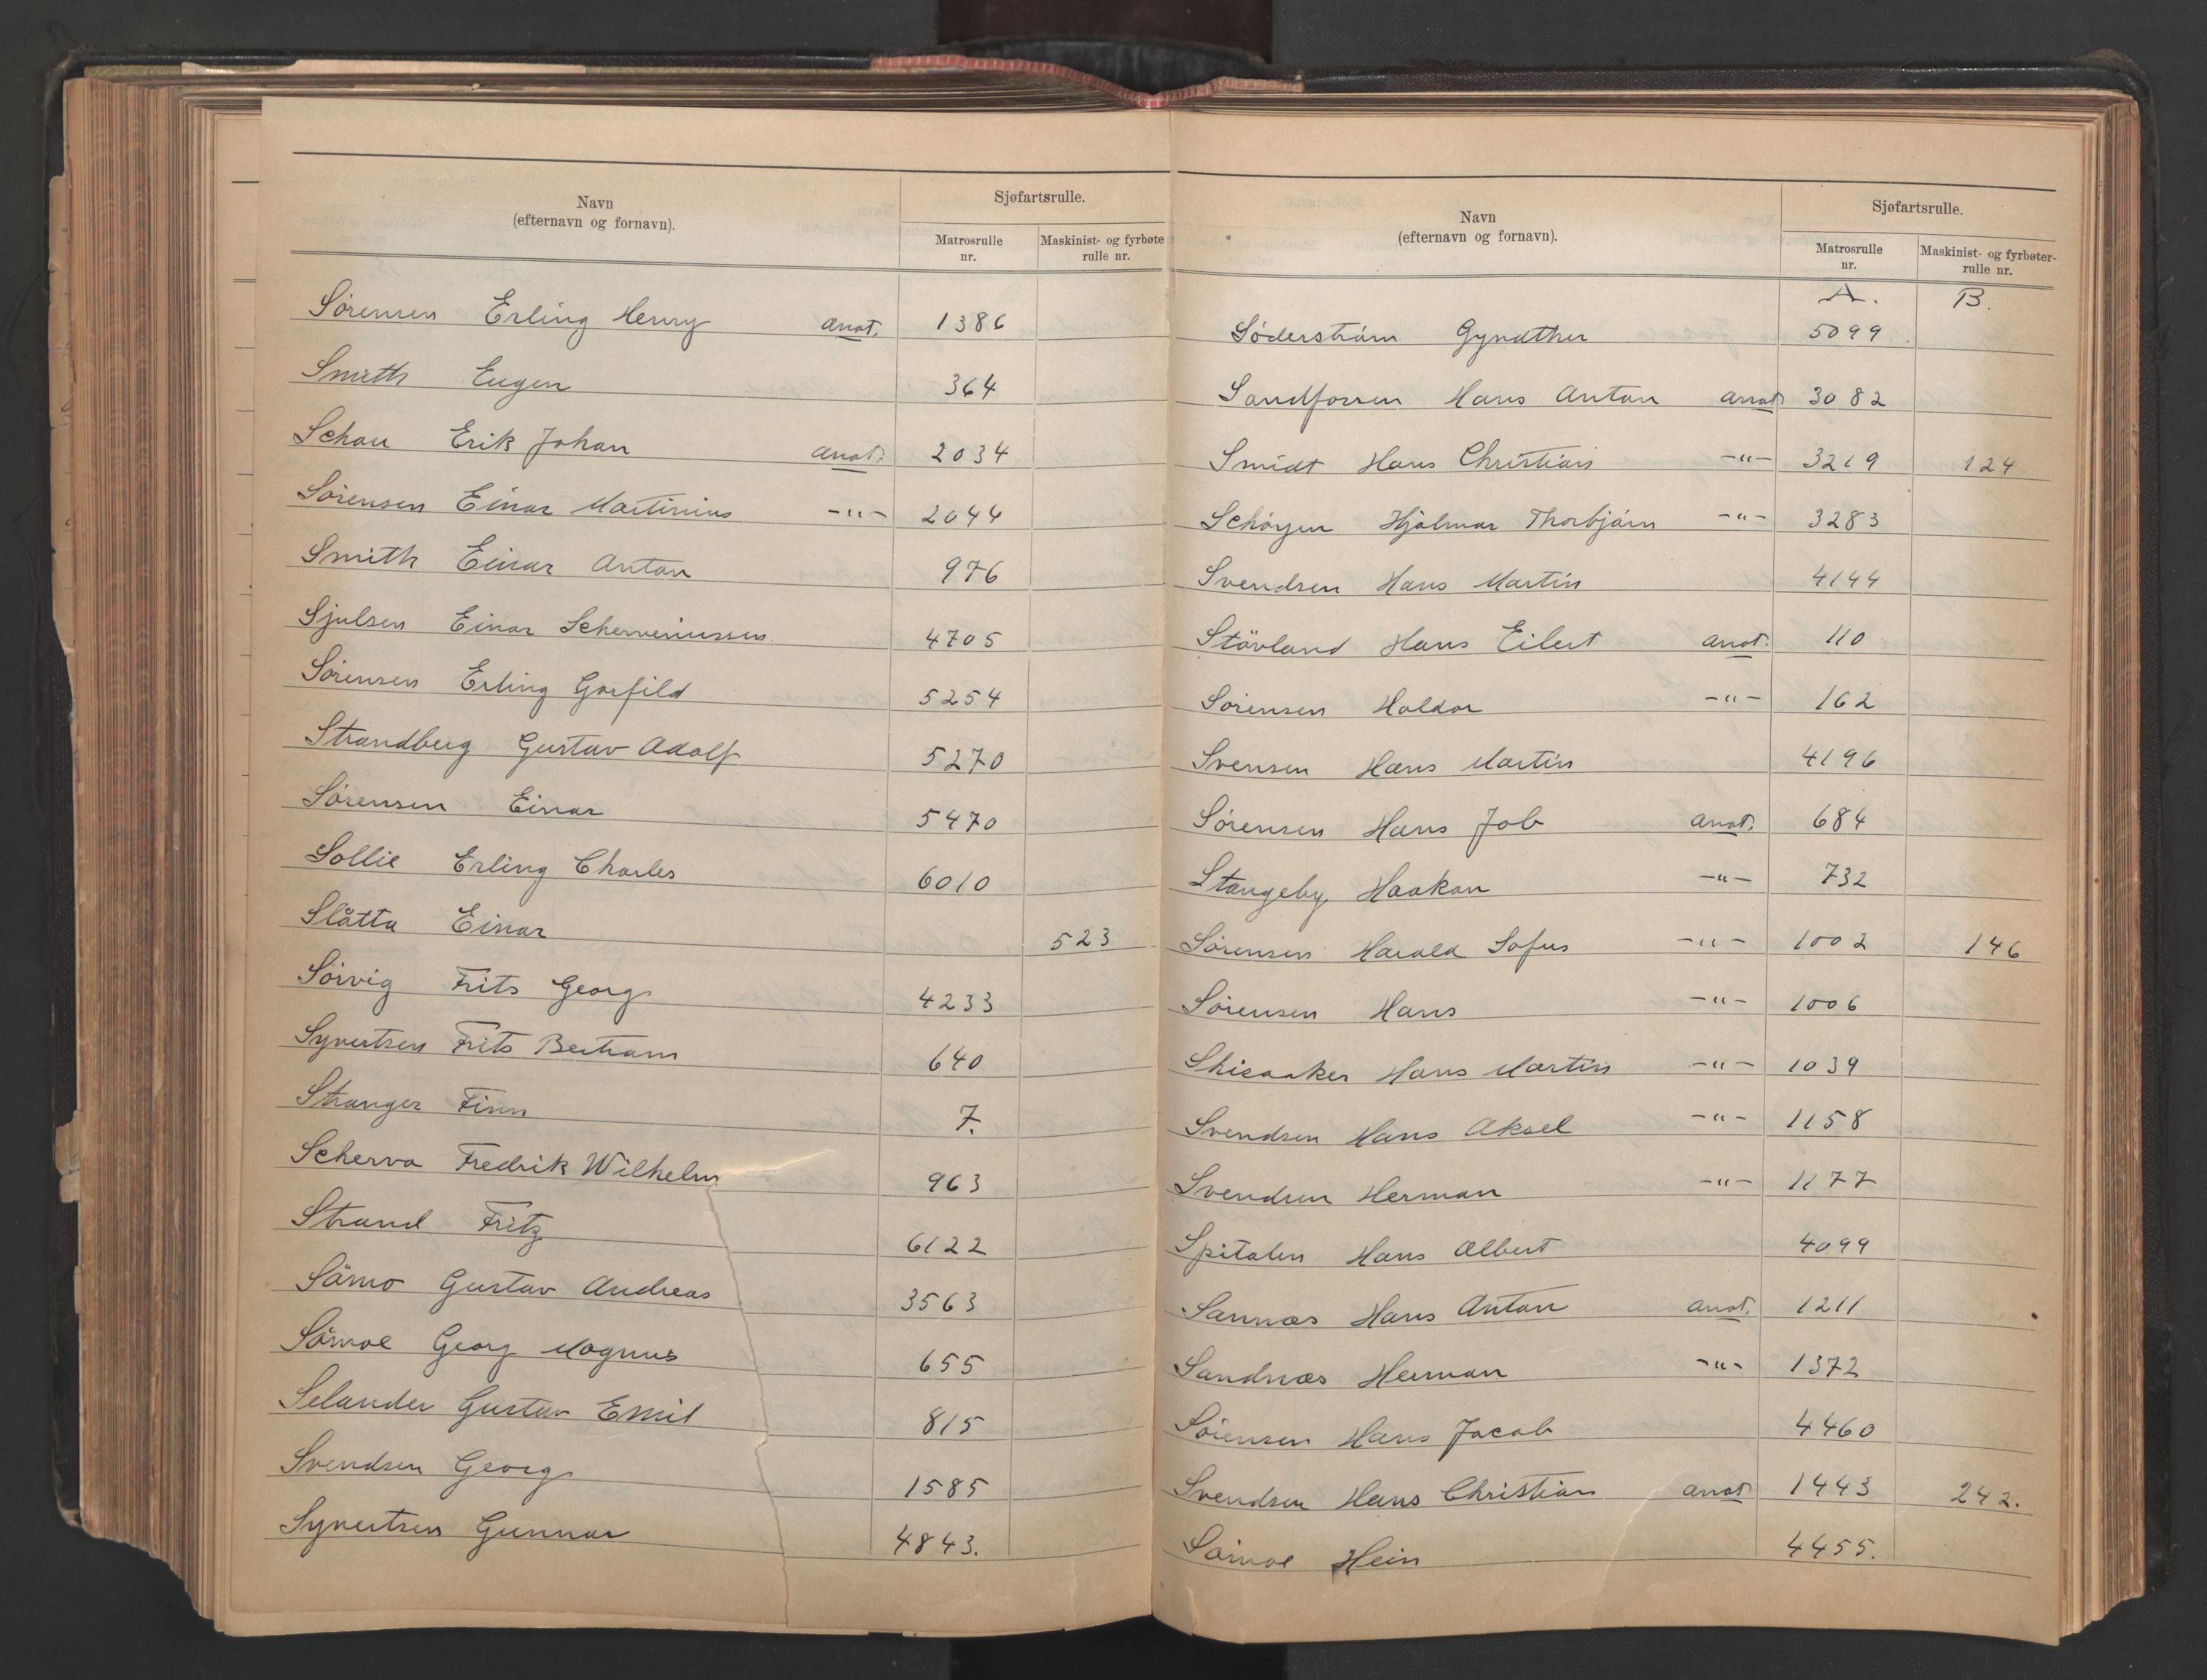 Navn
(efternavn og fornavn).
Sjøfartsrulle.
Matrosrulle
nr.
Maskinist- og fyrbøte
rulle nr.
Sørensen Erling Henry anot. 1386
Smith Eugen 364
Schau Erik Johan anot. 2034
Sørensen Einar Martinius -"- 2044
Smith Einar Anton 976
Sjulsen Einar 4705
Sørensen Erling Garfild 5254
Strandberg Gustav Adolf 5270
Sørensen Einar 5470
Sollie Erling Charles 6010
Slåtta Einar 523
Sørvig Frits Georg 4233
Syvertsen Frits Bertram 640
Stranger Finn 7.
Scherva Fredrik Wilhelm 963
Strand Fritz 6122
Sørmo Gustav Andreas 3563
Sørmoe Georg Magnus 655
Selander Gustav Emil 815
Svendsen Georg 1585
Syvertsen Gunnar 4843.
Navn
(efternavn og fornavn).
Sjøfartsrulle.
Matrosrulle
nr.
Maskinist- og fyrbøter-
rulle nr.
A. B.
Søderstrøm Gyndther 5099
Sandforsen Hans Anton anot 3082
Smidt Hans Christian -"- 3219 124
Schøyen Hjalmar Thorbjørn -"- 3283
Svendsen Hans Martin 4144
Støvland Hans Eilert anot. 110
Sørensen Haldor -"- 162
Svensen Hans Martin 4196
Sørensen Hans Job anot. 684
Stangeby Haakon -"- 732
Sørensen Harald Sofus -"- 1002 146
Sørensen Hans -"- 1006
Hans Martin -"- 1039
Svendsen Hans Aksel -"- 1158
Svendsen Herman -"- 1177
Spitalen Hans Albert 4099
Sannæs Hans Anton anot. 1211
Sandnæs Herman -"- 1372
Sørensen Hans Jacob 4460
Svendsen Hans Christian anot 1443 242.
Sørmoe Hein 4455.